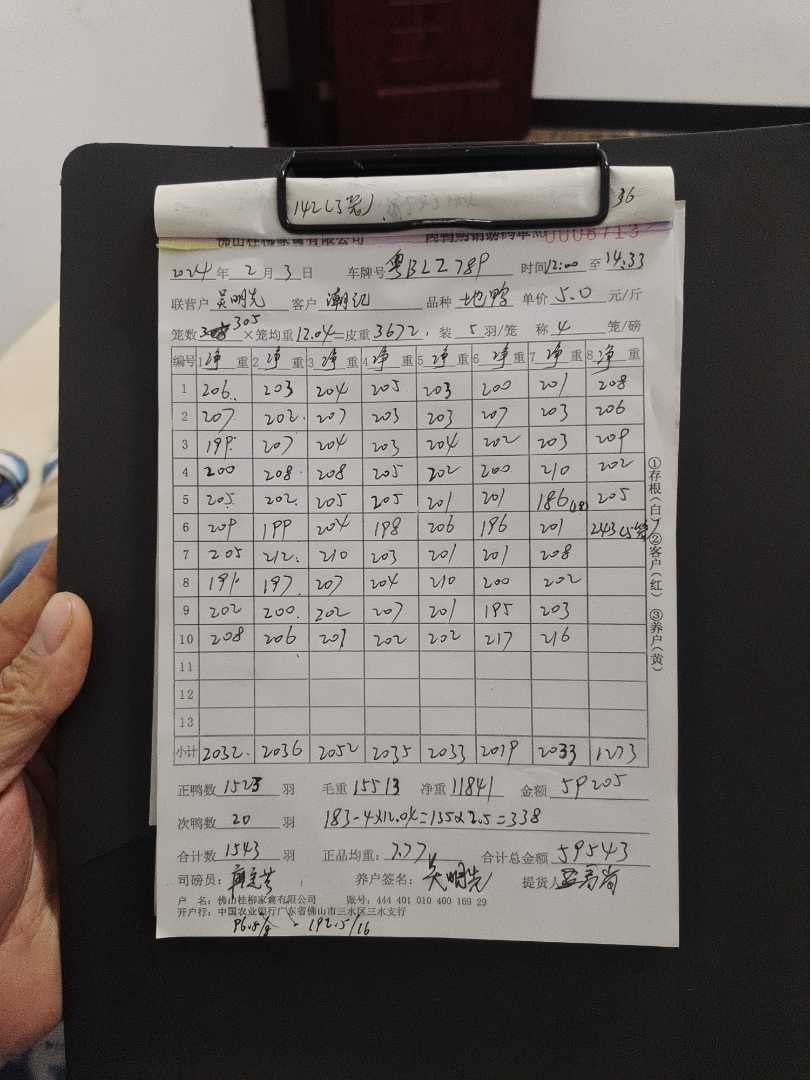 142(3笼) 36
佛山桂柳家禽有限公司 0008713
2024 年 2 月 3 日 车牌号 粤BLZ789 时间 12:00 至 14:33
联营户 吴明先 客户 潮记 品种 地鸭 单价 5.0 元/斤
笼数 305 ×笼均重 12.04 =皮重 3672 . 装 5 羽/笼 称 4 笼/磅
编号 1 净 重 2 净 重 3 净 重 4 净 重 5 净 重 6 净 重 7 净 重 8 净 重
1 206 203 204 205 203 200 201 208
2 207 202 207 203 203 207 203 206
3 199 207 204 203 204 202 203 209
4 200 208 208 205 202 200 210 202
5 205 202 205 205 201 201 186 205
6 209 199 204 198 206 196 201 243(5笼)
7 205 212 210 203 201 201 208
8 191 197 207 204 210 200 202
9 202 200 202 207 201 195 203
10 208 206 201 202 202 217 216
11
12
13
小计 2032 2036 2052 2035 2033 2019 2033 1273
①存根(白) ②客户(红) ③养户(黄)
正鸭数 1523 羽 毛重 15513 净重 11841 金额 59205
次鸭数 20 羽 183-4×12.04=135×2.5=338
合计数 1543 羽 正品均重: 7.77 合计总金额 59543
司磅员: 养户签名: 吴明先 提货人
户 名: 佛山桂柳家禽有限公司 账号: 444 401 010 400 169 29
开户行: 中国农业银行广东省佛山市三水区三水支行
192.5/16